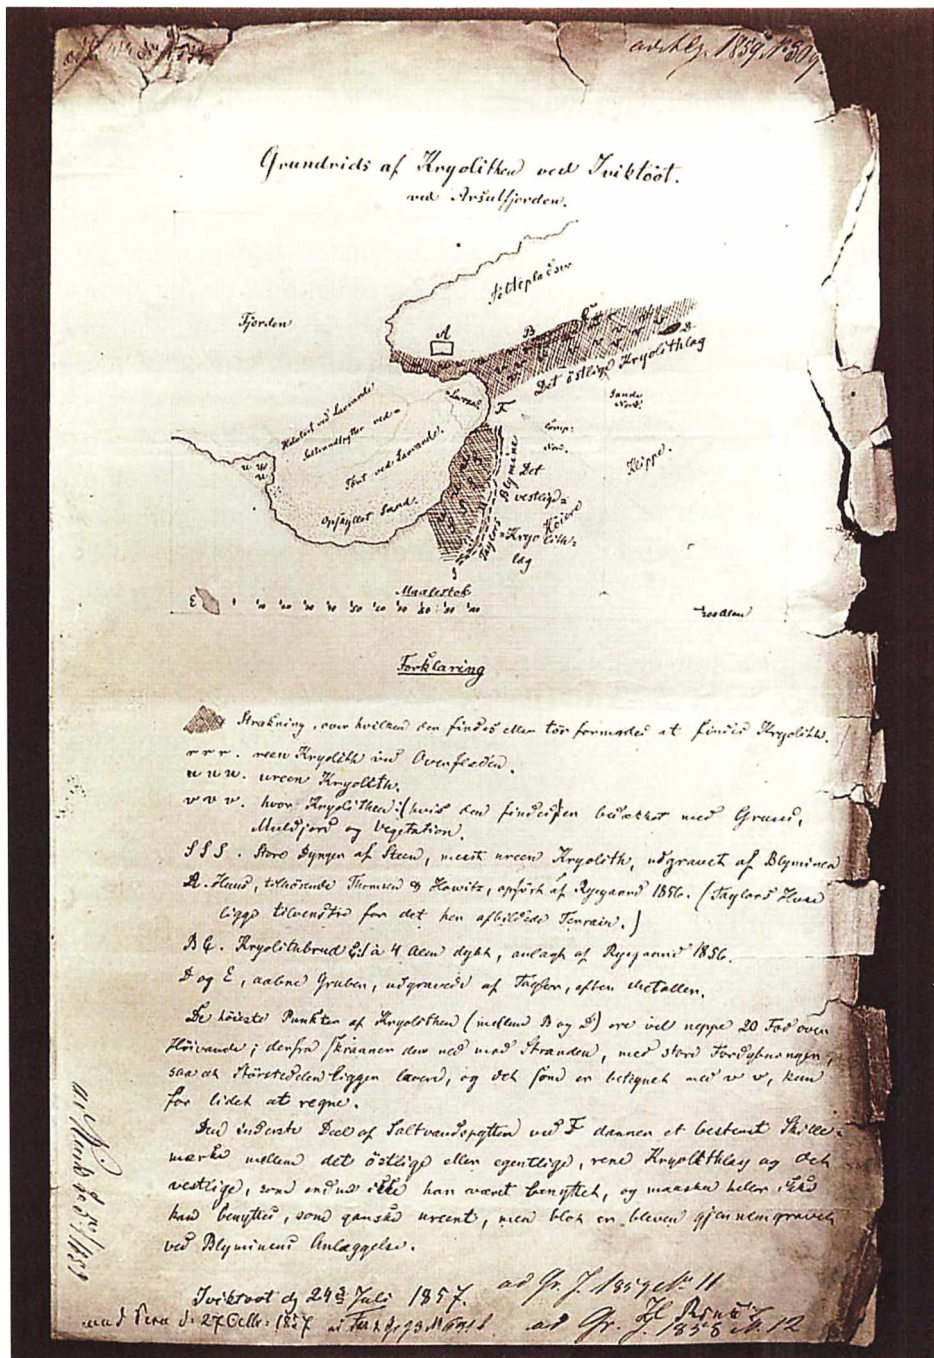 Grundrids af Kryolithen ved Iviktöot.
ved Arsutfjorden.
Fjorden
Sletteplads
A
B
C
D
Det östlige Kryolithlag
Sande
F
Klippe.
Halvtørt ved Lavvande
Saltvandspytter ved
Tört ved Lavvande.
Opskyllet Sand.
u u
u
Taylors Blymine
Det
vestlige
Höiere
Kryolith=
lag
S
Maalestok
E
10 20 30 40 50 60 70 80 90 100
200 Alen
Forklaring
Strækning, over hvilken der findes eller tör formodes at findes Kryolith.
r r r. reen Kryolith ved Overfladen.
u u u. ureen Kryolith.
v v v. hvor Kryolithen (hvis den findes) er bedækket med Gruus,
Muldjord og Vegetation.
S S S. Store Dynger af Steen, mest ureen Kryolith, udgravet af Blyminen
A. Huus, tilhörende Thomsen & Howitz, opfört af Rysgaard 1856. (Taylors Huse
ligge tilvenstre for det her afbildede Terrain.)
B C. Kryolithbrud à 4 Alen dybt, anlagt af Rysgaard 1856.
D og E, aabne Gruber, udgravede af Taylor, efter Metaller.
De höieste Punkter af Kryolithen (mellem B og D) ere vel neppe 20 Fod over
Höivande; derfra skraaner den ned mod Stranden, med store Fordybninger,
saa at Störstedelen ligger lavere, og det som er betegnet med v v, kun
for lidet at regne.
Den inderste Deel af Saltvandspytten ved F danner et bestemt Skille=
mærke mellem det östlige eller egentlige, rene Kryolithlag og det
vestlige, som endnu ikke har været benyttet, og maaskee heller ikke
kan benyttes, som ganske ureent, men blot er bleven gjennemgravet
ved Blyminens Anlæggelse.
Iviktoot d. 24de Juli 1857.
ad Gr. J. 1859 No 11
ad Gr. J. 1858 N. 12